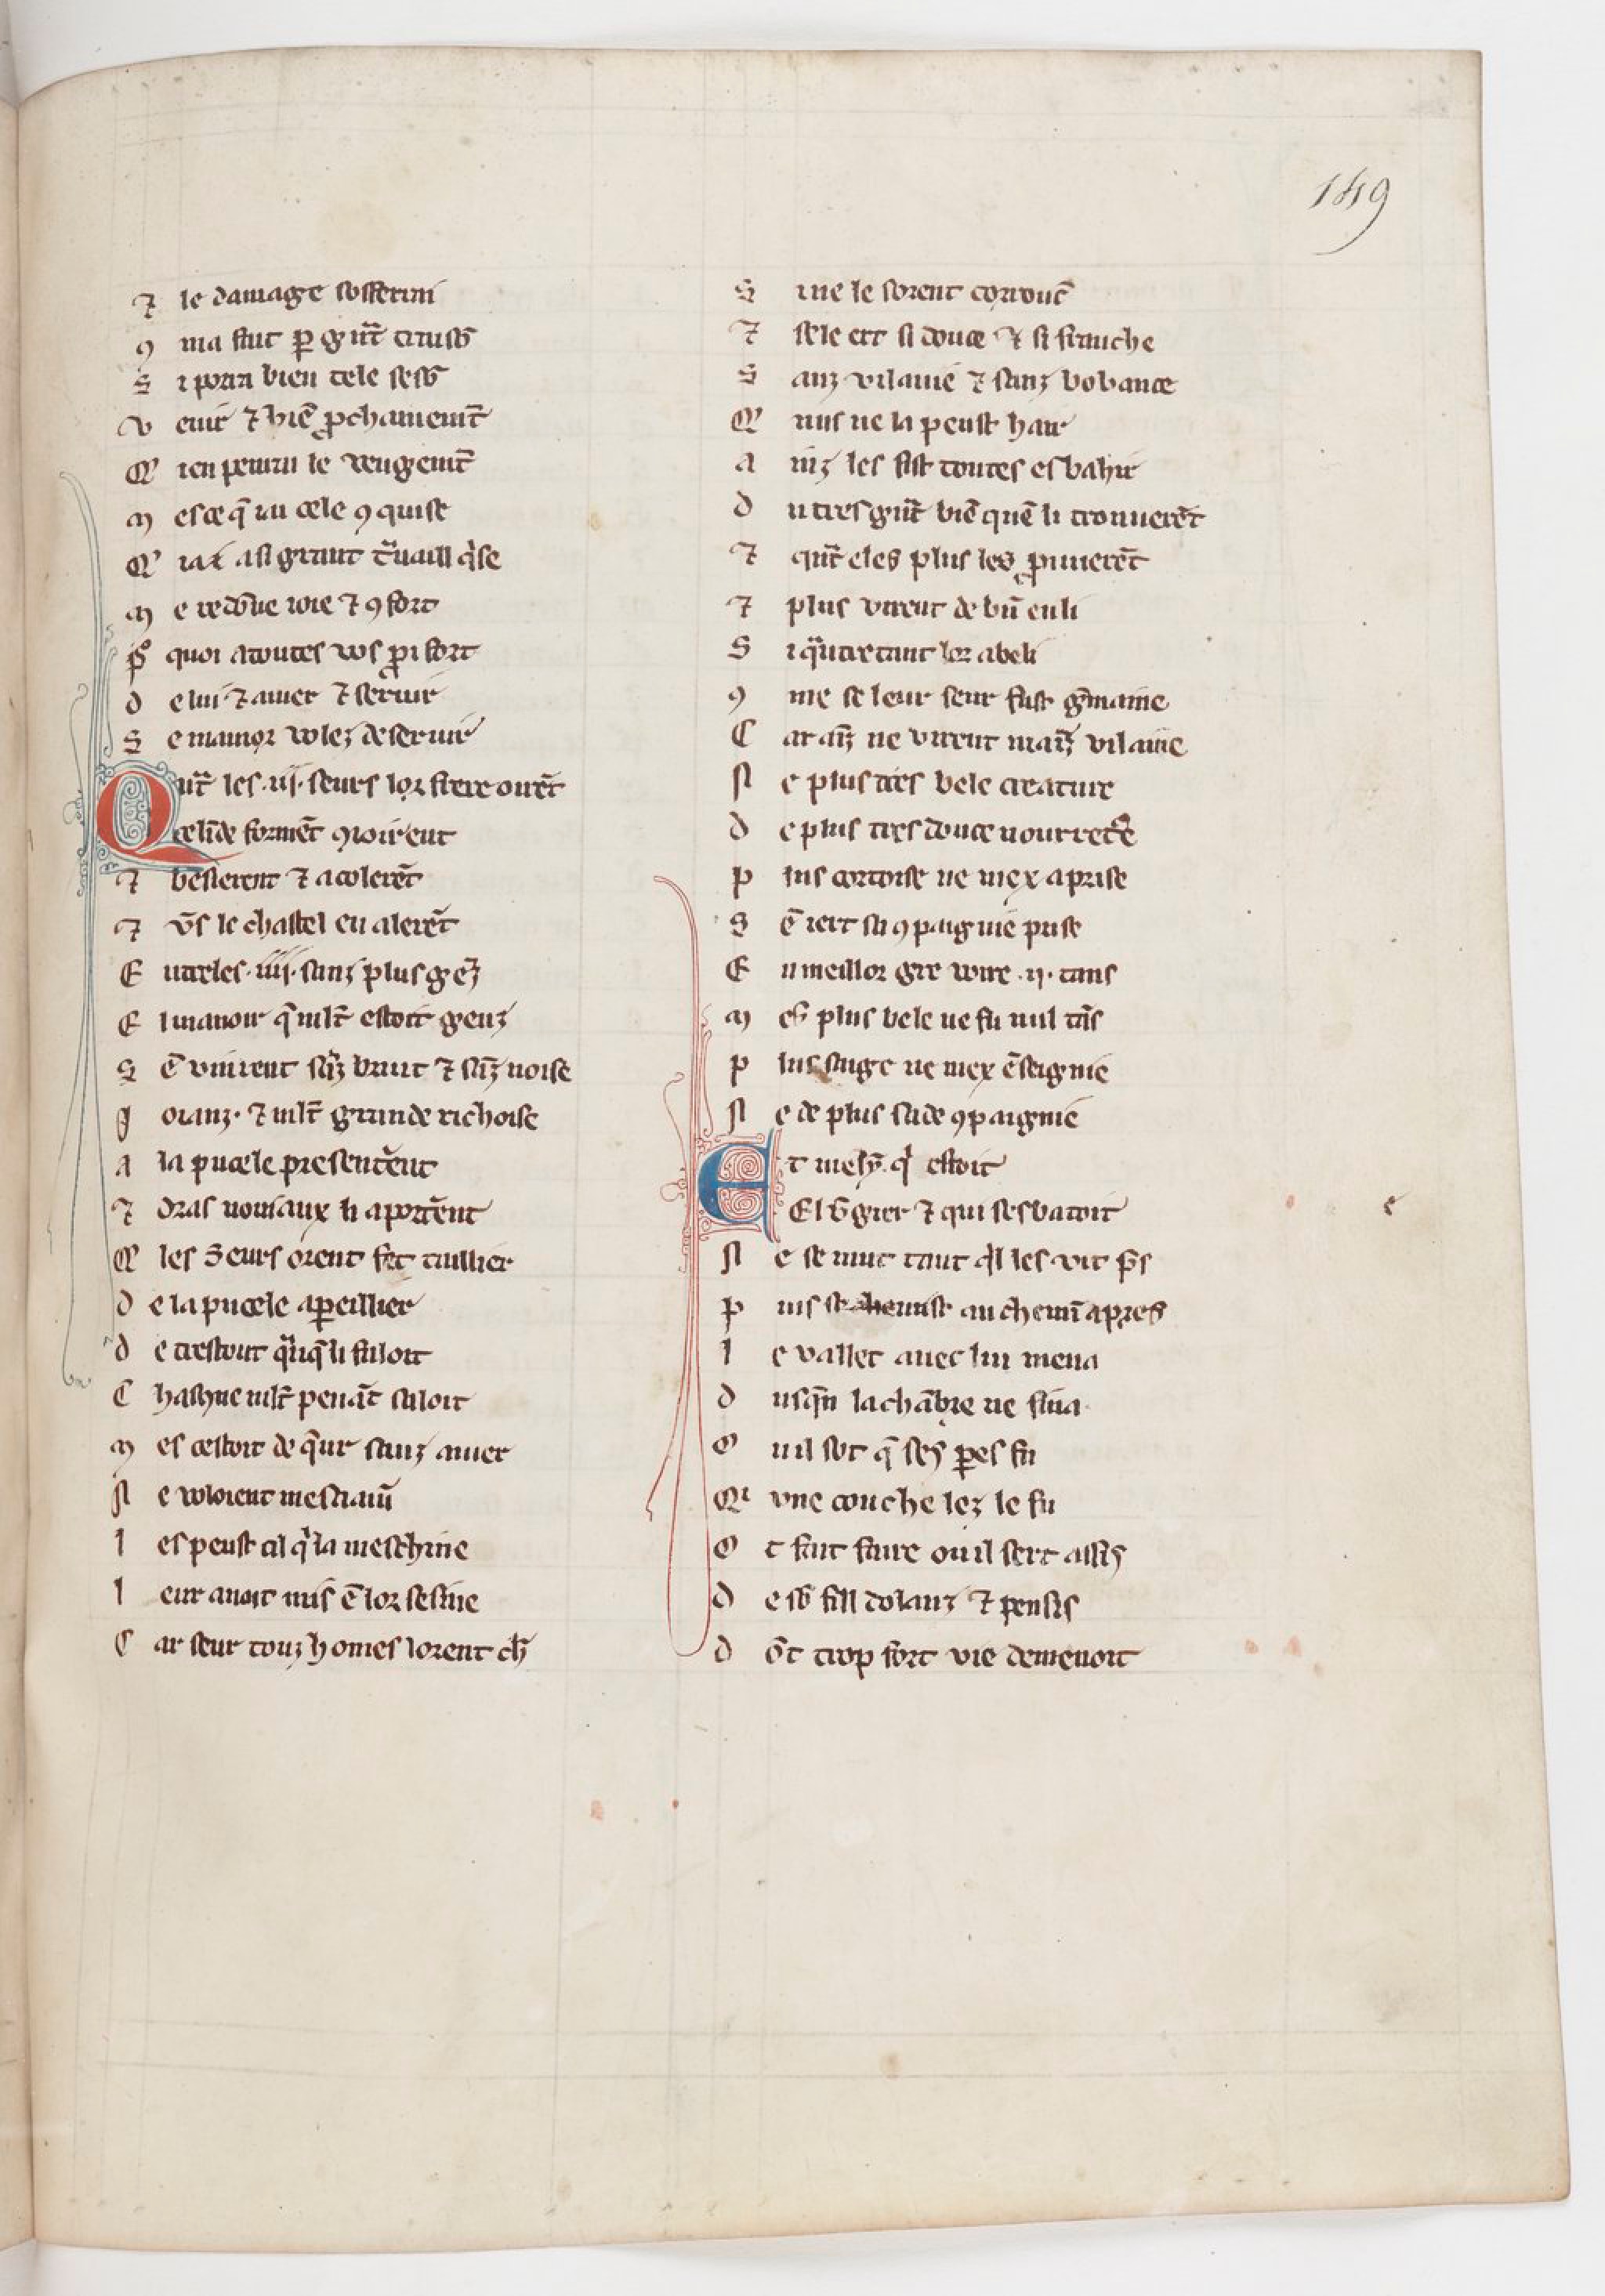 149
⁊ le damage soffertai
ꝯ ma fait ꝑ gnt̃ traisõ
S i porra bien tele sesõ
V enir ⁊ biẽ ꝓchainemt̃
Q ien penrai le vengemt̃
M es ce q̃ iai cele ꝯquise
Q iai a si grant trauaill q̃se
M e redõne ioie ⁊ ꝯfort
P̣ quoi a toutes vos pri fort
D e lui ⁊ amer ⁊ seruir
S e mamor volez deseruir
Qñt les .iij. seurs lor frere oirẽt
Celide formẽt ꝯioirent
⁊ besierent ⁊ acolerẽt
⁊ v̾s le chastel en alerẽt
E ntreles .iiij. sanz plus gẽz
E l manoir q̃ mlt̃ estoit genz
S ẽ vinrent sãz bruit ⁊ sãz noise
J oianz. ⁊ mlt̃ grande richoise
A la pucele presenterent
⁊ dras nouiaux li aporterent
Q les seurs orent fet taillier
D e la pucele apeillier
D e trestout qñq̃ li failoit
C hascune mlt̃ penãt sailoit
M es cestoit de cuer sanz amer
N e voloient mesaiaimi
L es peust cil q̃ la meschine
L eur auoit mis ẽ lor sesine
C ar seur touz homes lorent ch̾
S i ne le sorent corroucĩ
⁊ sele ert si douce ⁊ si franche
S anz vilanie ⁊ sanz bobance
Q nus ne la peust hair
A inz les fist toutes esbahir
D u tres gñt biẽ quẽ li trouuerẽt
⁊ qñt eles plus les ꝓuuerẽt
⁊ plus virent de biẽ en li
S i q̃ trestant lor abeli
ꝯ me se leur seur fust g̃maine
C ar ainz ne virent mainz vilaine
N e plus tres bele creature
D e plus tres douce nourretẽ
P lus cortoise ne miex aprise
S ẽ iert sa ꝯpaignie prise
E n meillor gre voire .ij. tans
M es plus bele ne fu nul tãs
P lus sage ne miex ẽseignie
N e de plus sade ꝯpaignie
Et mehy. q̃ estoit
El v̾gier ⁊ qui sesbatoit
N e se mut tant q̃l les vit p̃s
P uis se chemise au chemĩ apres
L e vallet auec lui mena
D usq̃n la chãbre ne fina
O u il sot q̃ ses peres fu
Qi vne couche lez le fu
O t fait faire ou il sert assis
D e sõ fill dolanz ⁊ pensis
D õt trop fort vie demenoit